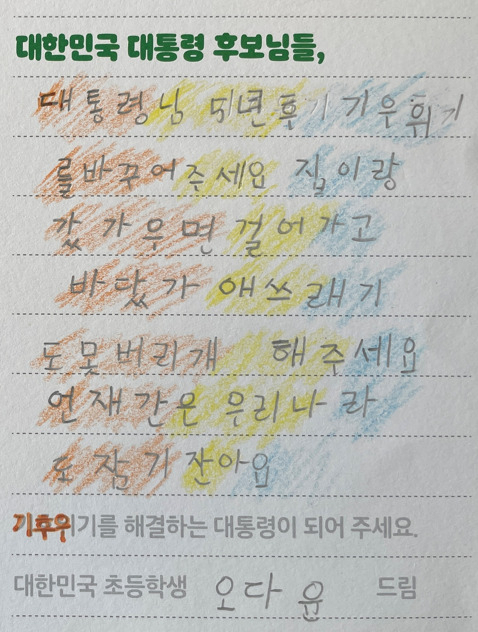 대한민국 대통령 후보님들,
대통령님 되면 후기 기우휘기
를바꾸어주세요 집이랑
갔가우면 걸어가고
바닸가 애쓰래기
도못버리개 해주세요
언재간은 우리나라
도잠기잔아요
기후위기를 해결하는 대통령이 되어 주세요.
대한민국 초등학생 오다윤 드림